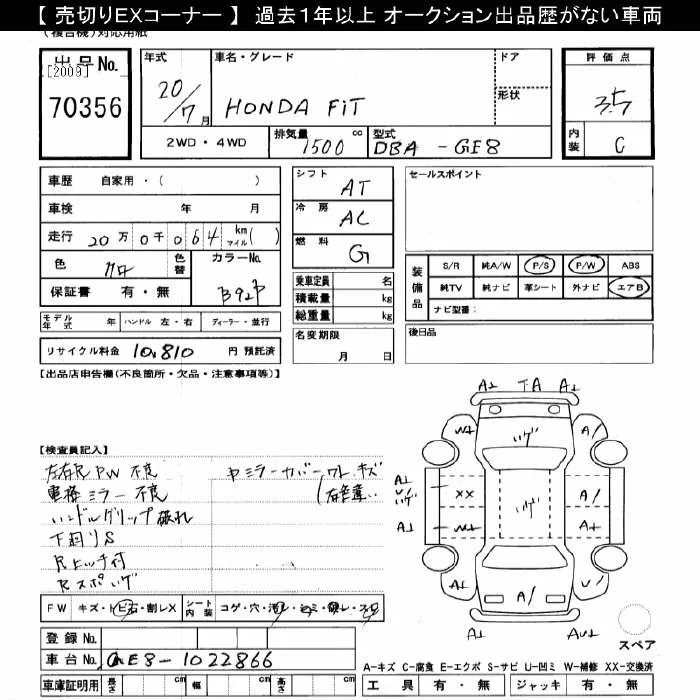 【 売切りEXコーナー 】 過去１年以上 オークション出品歴がない車両
(複合機)対応用紙
出品No.
[2009]
70356
年式
20/7月
車名・グレード
HONDA FiT
ドア
形状
評価点
3.5
内装
C
2WD・4WD
排気量
1500 cc
型式
DBA - GE8
車歴 自家用・( )
車検 年 月
走行 20万0千064 km マイル( )
色
色替
カラーNo.
B92P
保証書 有・無
シフト AT
冷房 AC
燃料 G
乗車定員 名
積載量 kg
総重量 kg
名変期限
月 日
セールスポイント
装備品
S/R 純A/W P/S P/W ABS
純TV 純ナビ 革シート 外ナビ エアB
ナビ型番:
後日品
モデル年式 年 ハンドル 左・右 ディーラー・並行
リサイクル料金 10,810 円 預託済
【出品店申告欄(不良箇所・欠品・注意事項等)】
【検査員記入】
左右R PW 不良
車格ミラー 不良
ハンドルグリップ破れ
下廻りS
Rヒッチ付
Rスポイゲ
中ミラーカバーワレ キズ
(右色違..
A1 TA A1
イゲ
W1 A/
A1
U/
イゲ
A1
XX
A/
イゲ
W1
A1
A1
A/
A1
U/
A1
AU1
スペア
FW キズ・トビ石・割レX
シート内装 コゲ・穴・汚レ・シミ・破レ・スレ
登録 No.
車台 No. GE8-1022866
車庫証明用 長さ cm 幅 cm 高さ cm
A-キズ C-腐食 E-エクボ S-サビ U-凹ミ W-補修 XX-交換済
工具 有・無 ジャッキ 有・無